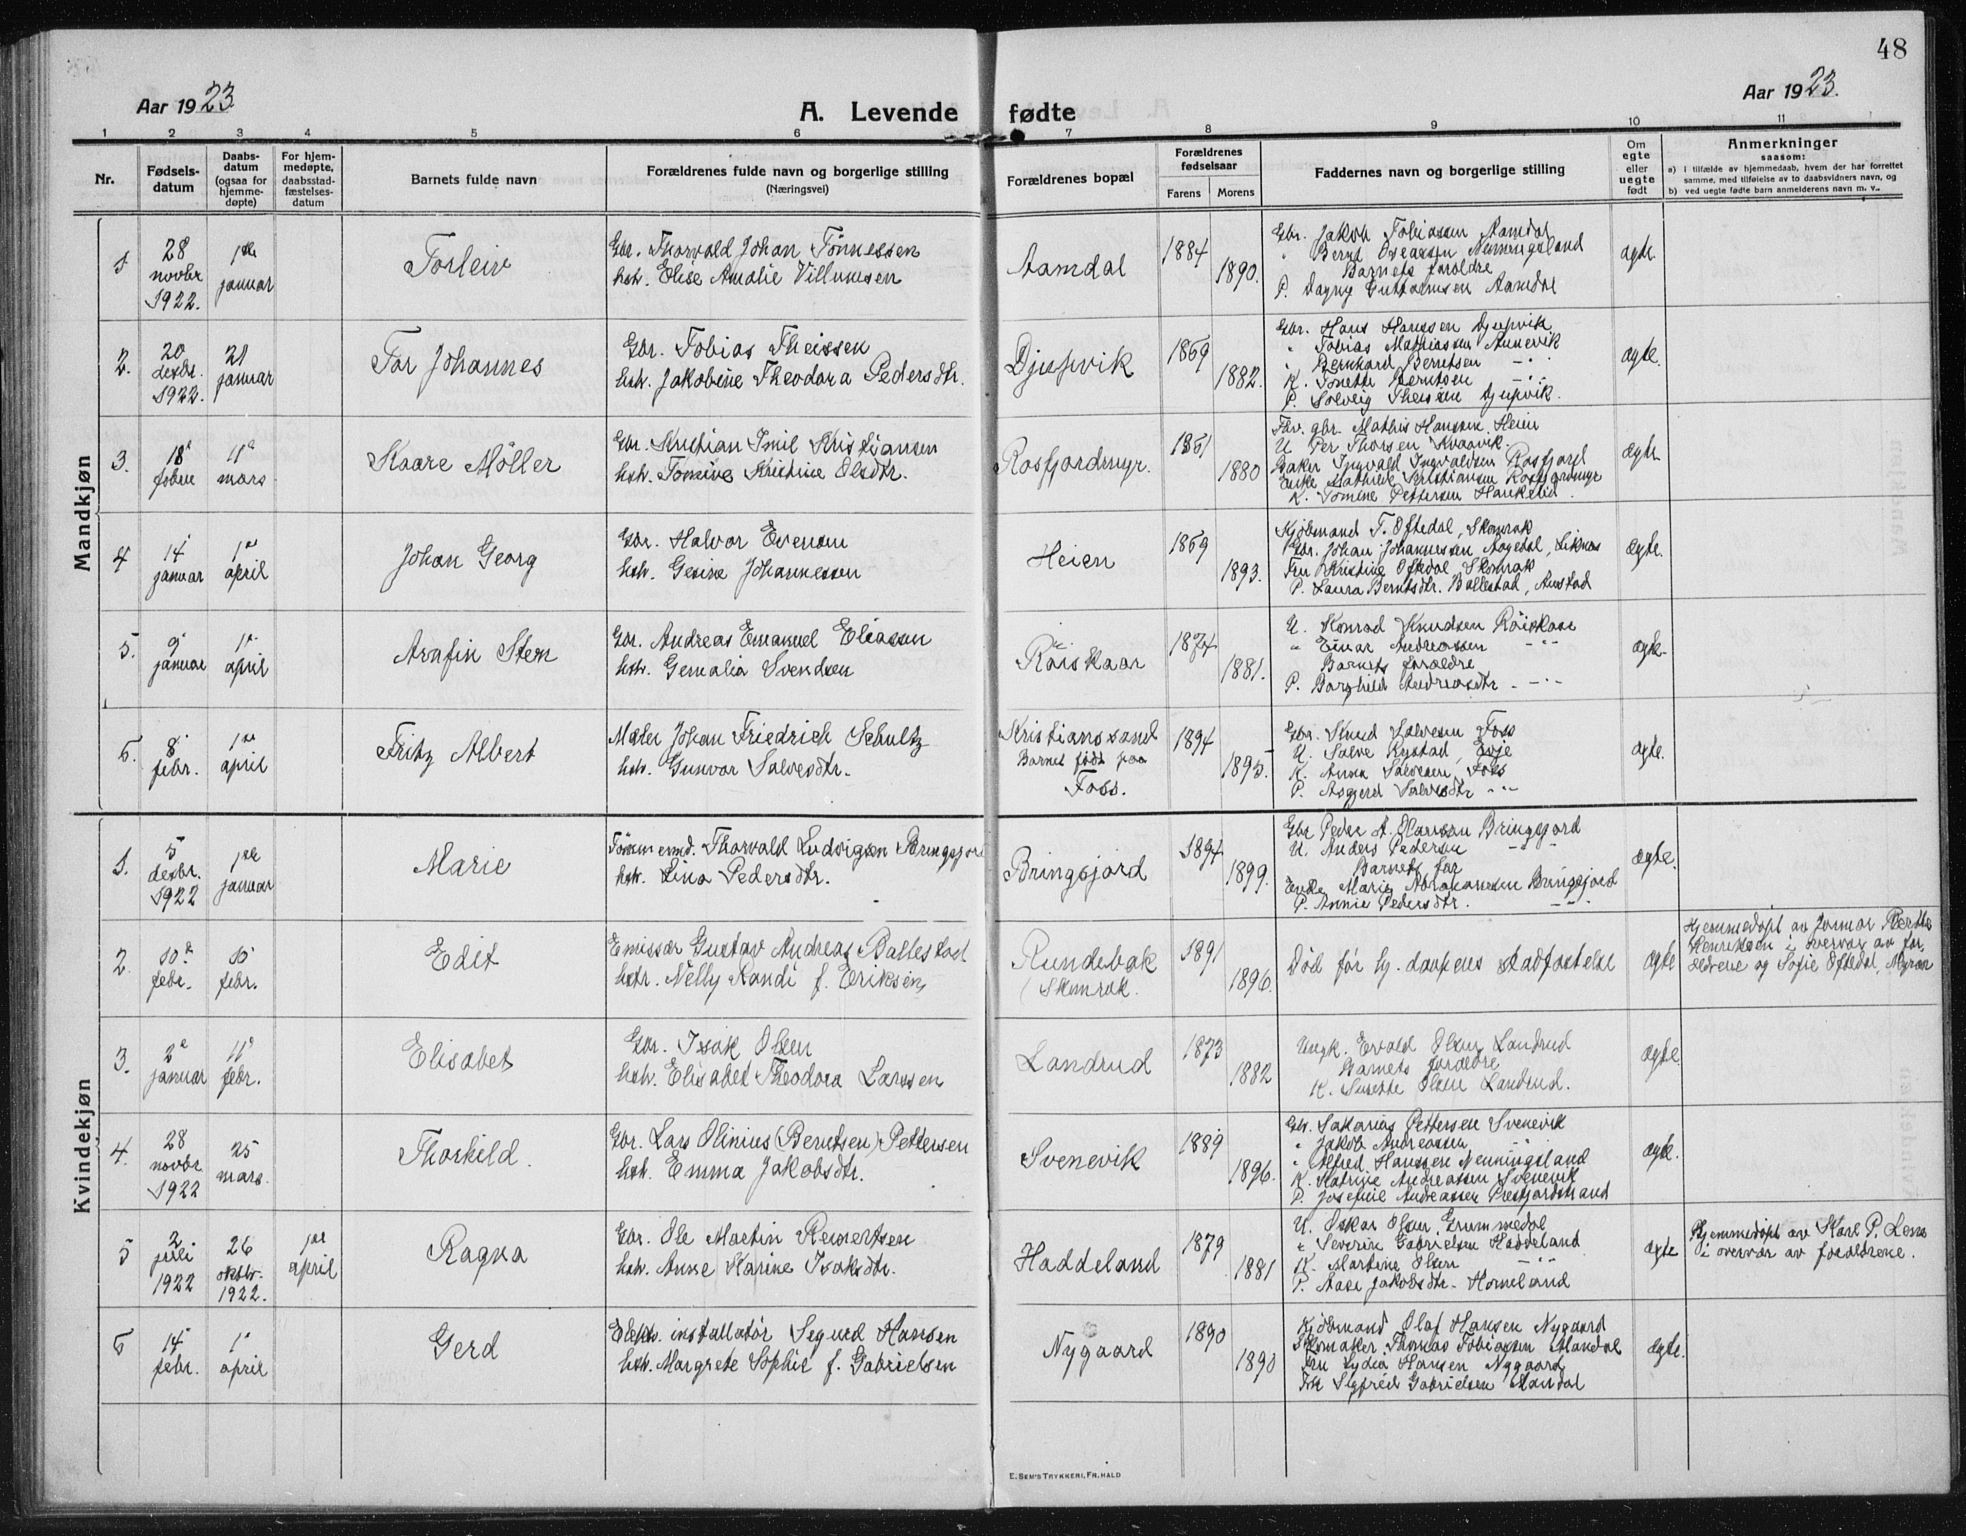 48
Aar 1923
A. Levende fødte
Aar 1923.
1 2 3 4 5 6 7 8 9 10 11
Nr.
Fødsels-
datum
Daabs-
datum
(ogsaa for
hjemme-
døpte)
For hjem-
medøpte,
daabsstad-
fæstelses-
datum
Barnets fulde navn
Forældrenes fulde navn og borgerlige stilling
(Næringsvei)
Forældrenes bopæl
Forældrenes
fødselsaar
Farens Morens
Faddernes navn og borgerlige stilling
Om
egte
eller
uegte
født
Anmerkninger
saasom:
a) i tilfælde av hjemmedaab, hvem der har forrettet
samme, med tilføielse av to daabsvidners navn, og
b) ved uegte fødte barn anmelderens navn m. v..
Mandkjøn
1.
28
novbr
1922.
1ste
januar
Torleiv
Gbr. Thorvald Johan Tönnessen
hstr. Elise Amalie Villumsen
Aamdal
1884
1890.
Gbr. Jakob Tobiassen Aamdal
" Bernt Oveassen
Barnets foreldre
P. Dagny Guttormsen Aamdal
ægte
2.
20
desbr.
1922.
21
januar
Tor Johannes
Gbr. Tobias Theissen
hstr. Jakobine Theodora Pedersdtr.
Djupvik
1869
1882.
Gbr. Hans Hanssen Djupvik
" Tobias Mathiassen Aunevik
" Bernhard Berntsen - " -
K. Tonette Berntsen - " -
P. Solveig Theissen Djupvik.
ægte.
3.
18
11
mars
Kaare Möller
Gbr. Kristian Emil Kristiansen
hstr. Tomine Kristine Olsdtr.
Rosfjordmyr.
1880
gbr. Mathis Hanssen Heien
U. Per Thorsen Kvaavik.
Baker Ingvald Ingvaldsen Rosfjord
Enke Mathilde Kristiansen Rosfjordmyr
K. Tomine Pettersen Haukelid.
ægte
4
14
januar
1ste
april
Johan Georg
Gbr. Halvor Evensen
hstr. Gesine Johannessen
Heien
1869
1893.
Kjöbmand T. Oftedal, Skomrak
Gbr. Johan Johannessen Aagedal, Liknes
Fru Kristine Oftedal, Skomrak
P. Laura Berntsdtr. Ballestad, Austad
ægte.
5.
9
januar
1ste
april
Arafin Sten
Gbr. Andreas Emanuel Eliassen
hstr. Gemalia Svendsen
Röiskaar
1874
1881.
U. Konrad Knudsen Röiskaar
" Einar Andreassen - " -
Barnets foreldre
P. Borghild Andreasdtr. - " -
ægte.
6.
8
febr.
1ste
april
Fritz Albert
Maler Johan Friedrich Schultz
hstr. Gunvor Salvesdtr.
Kristianssand
Barnet født paa
Foss.
1894
1895.
Gbr. Knud Salvesen Foss
U. Salve Rystad, Evje
K. Anna Salvesen, Foss
P. Asgjerd Salvesdtr - " -
ægte.
Kvindekjøn
1.
5
desbr.
1922
1ste
januar
Marie
Thorvald Ludvigsen Bringsjord
hstr. Lina Pedersdtr.
Bringsjord
1894
1899.
Gbr Peder A. Olavsson Bringsjord
U. Anders Pedersen - " -
Barnets far
Enke Marie Abrahamsen Bringsjord
P. Annie Pedersdtr. - " -
ægte.
2.
10
febr.
15
febr.
Edit
Emissær Gustav Andreas Ballestad
hstr. Nelly Randi f. Eriksen
Rundebak
Skomrak.
1891
1896.
Död før hj. daapens stadfæstelse
ægte
Hjemmedøpt av Jormor Berthe
Henriksen i overvær av for-
eldrene og Sofie Oftedal, Myran
3.
2
januar
11
febr.
Elisabet
Gbr. Isak Olsen
hstr. Elisabet Theodora Larssen
Landrud
1873
1882
Ungk. Evald Olsen Landrud
Barnets foreldre
K. Susette Olsen Landrud.
ægte
4.
28
novbr
1922
25
mars
Thorhild.
Gbr. Lars Olinius (Berntsen) Pettersen
hstr. Emma Jakobsdtr.
Svenevik
1889
1896.
Gbr. Sakarias Pettersen Svenevik
" Jakob Andreassen - " -
" Alfred Hanssen Nenningsland
K. Katrine Andreassen Svenevik
P. Josefine Andreassen Prestjordstrand
ægte.
5
2
juli
1922
26
oktbr.
1922.
1ste
april
Ragna
Gbr. Ole Martin Reinertsen
hstr. Anne Karine Isaksdtr.
Haddeland
1879
1881
U. Oskar Olsen Grummedal
" Severin Gabrielsen Haddeland
K. Martine Olsen - " -
P. Aase Jakobsdtr. Homeland
ægte
Hjemmedøpt av Karl P. Lene
i overvær av foreldrene.
6
14
febr.
1
april
Gerd
Elektr. installatør Sigurd Hansen
hstr. Margrete Sophie f. Gabrielsen
Nygaard
1890
1890
Kjöbmand Olaf Hansen Nygaard
Skomaker Thomas Tobiassen Mandal
Fru Lydia Hansen Nygaard
Frk Sigfrid Gabrielsen Mandal
ægte.
E. SEM'S TRYKKERI, FR.HALD